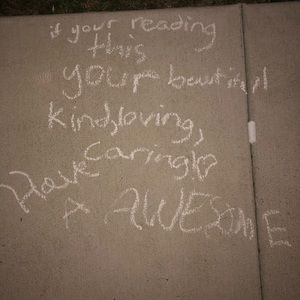 if your reading
this
your beautiful
kind, loving,
caring
Have
A AWESOME